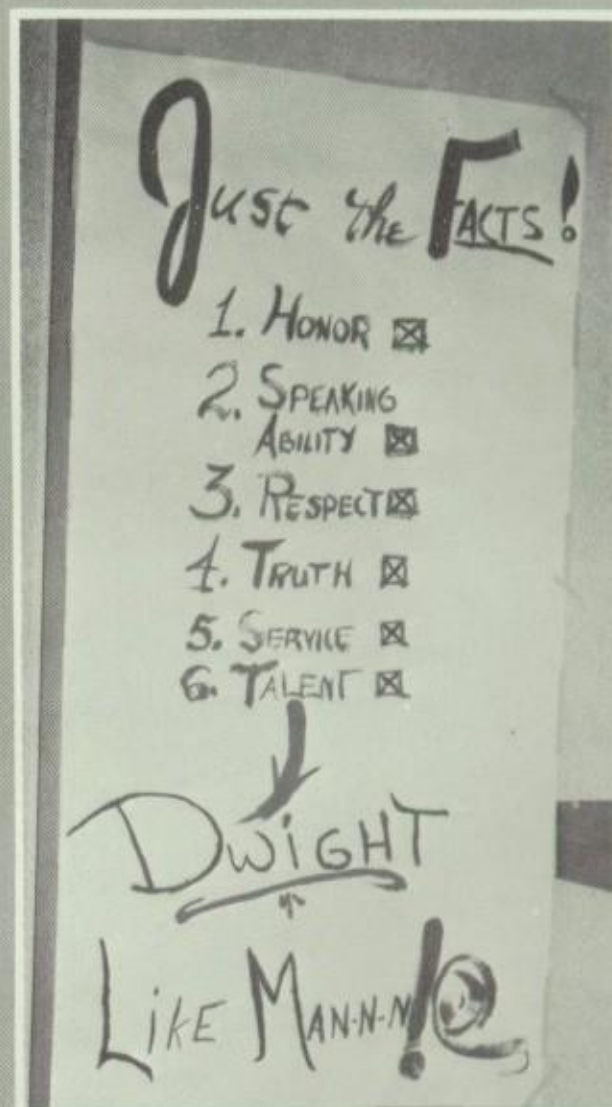 Just the FACTS!
1. HONOR ☒
2. SPEAKING
ABILITY ☒
3. RESPECT ☒
4. TRUTH ☒
5. SERVICE ☒
6. TALENT ☒
DWiGHT
LiKE MAN-N-N!